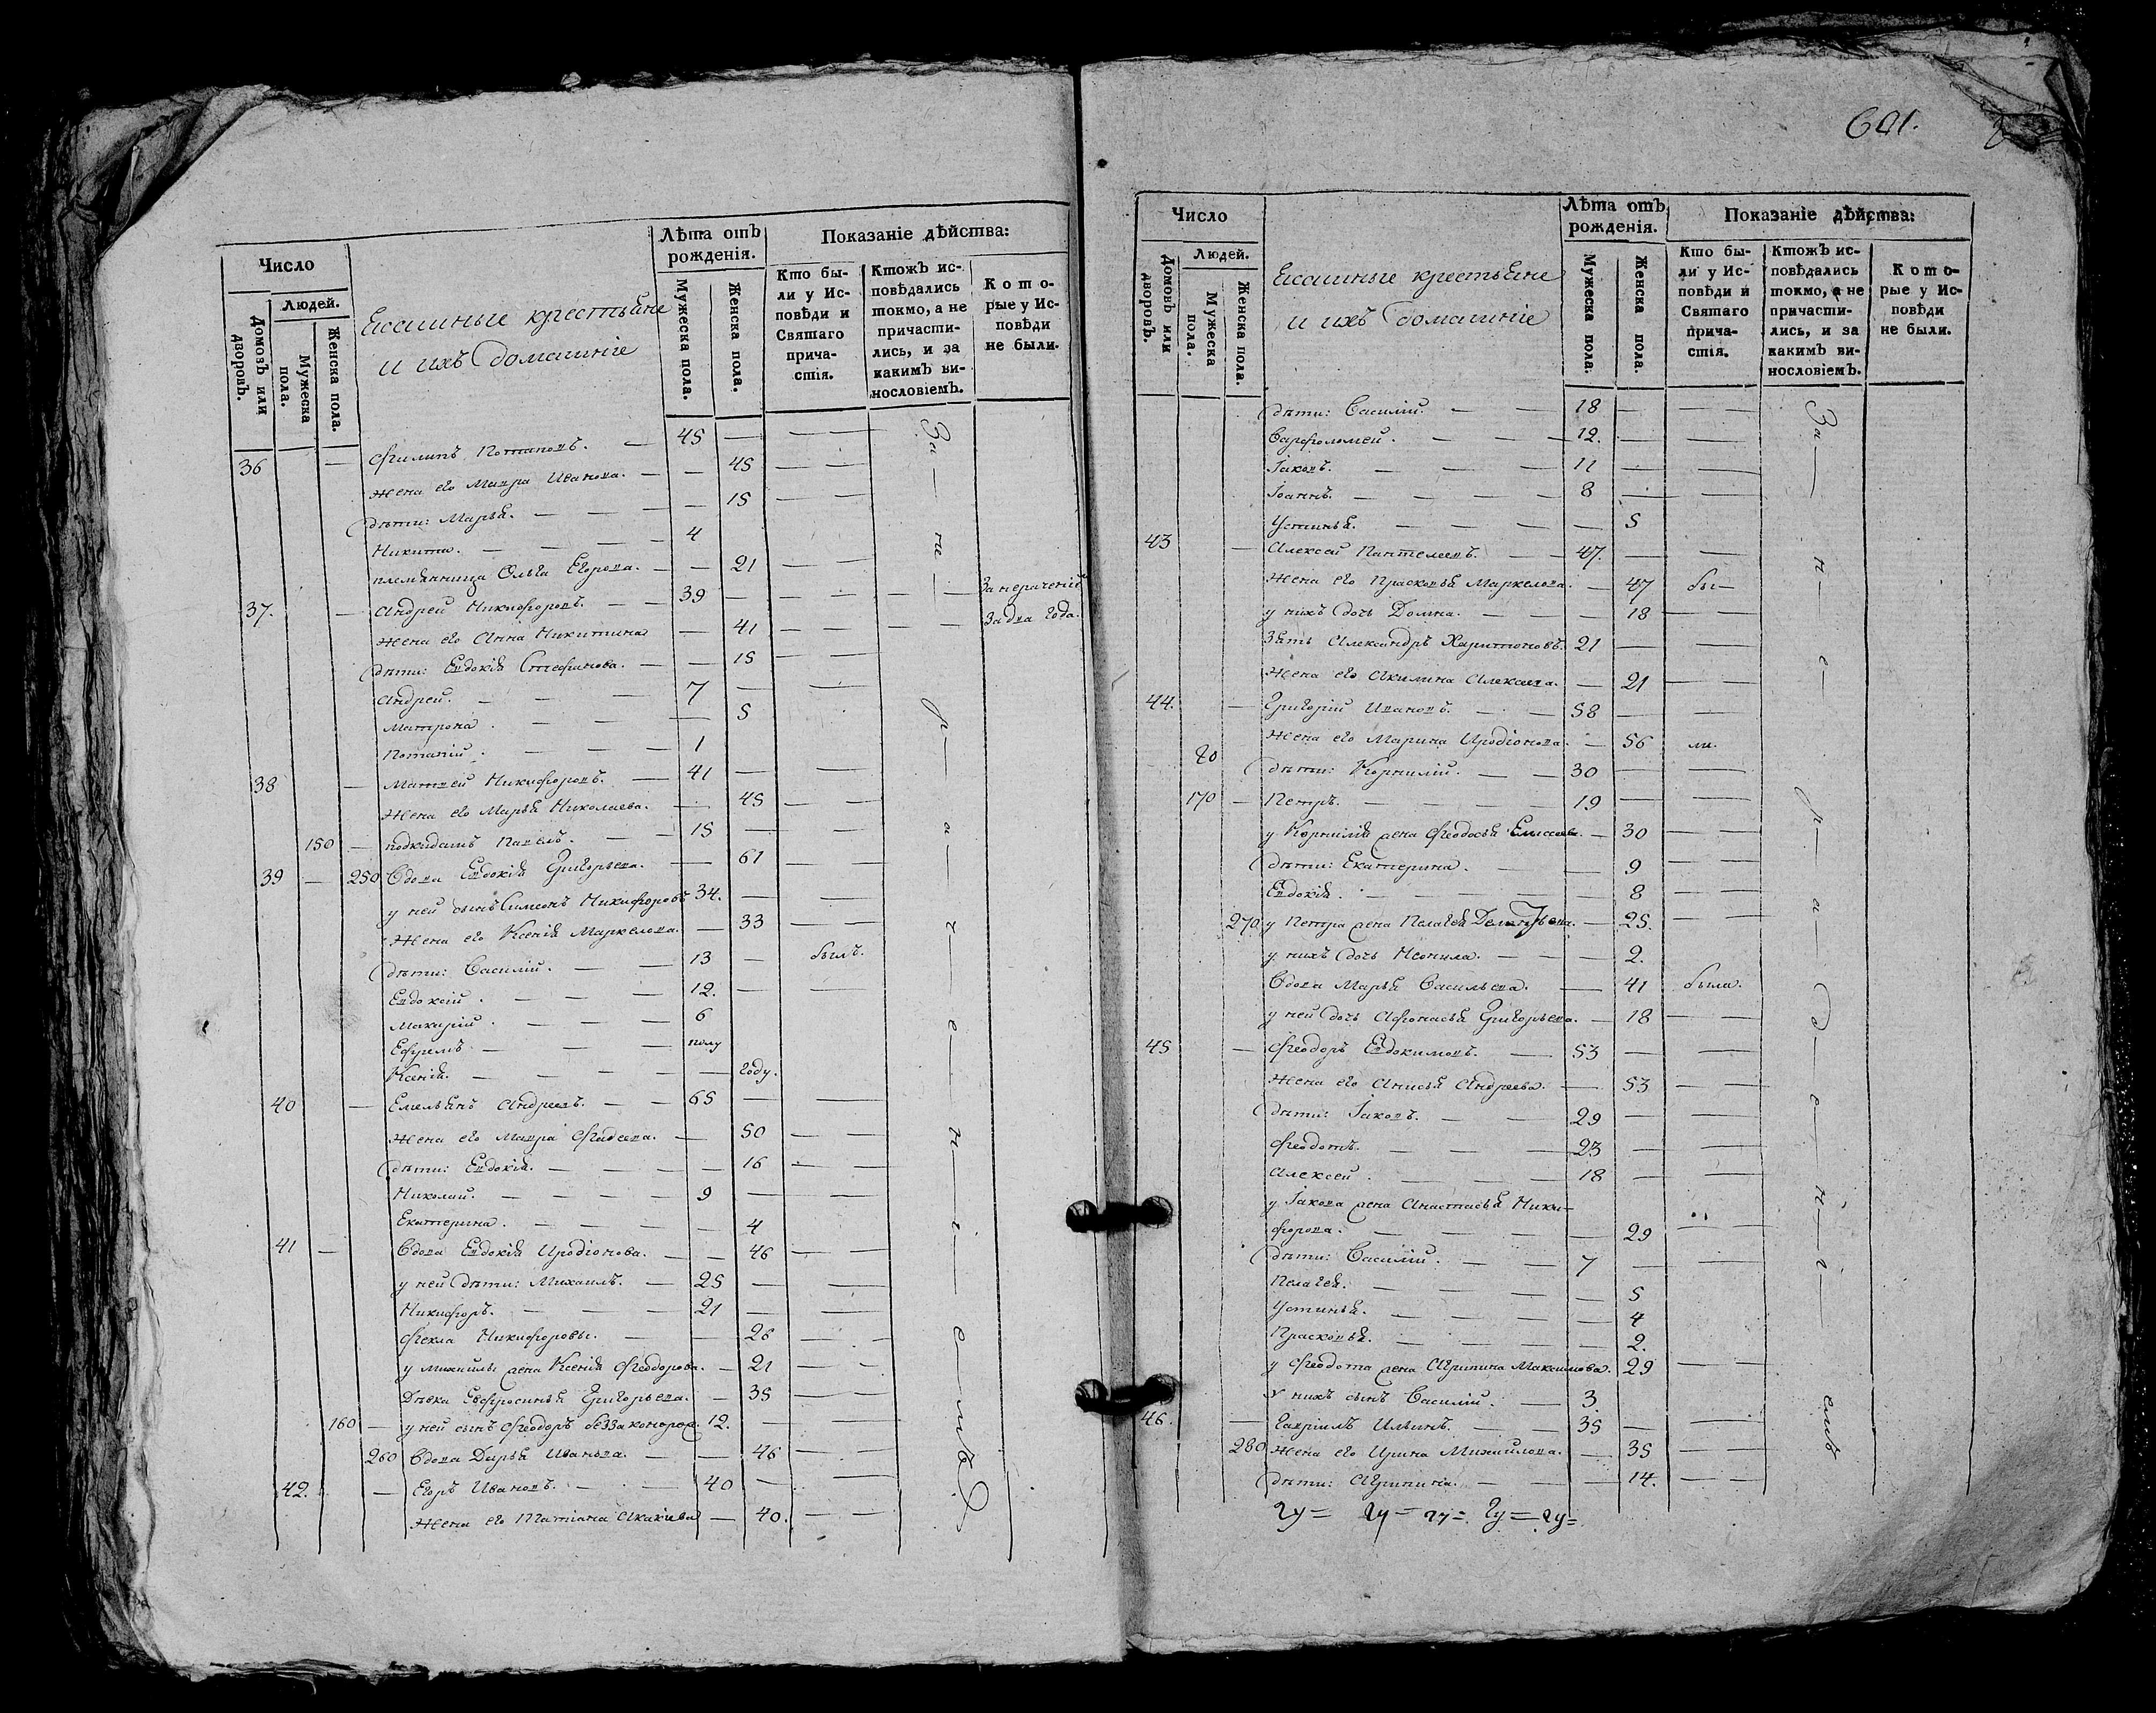 Число
Людей.
Домовъ или дворовъ.
Мужеска пола.
Женска пола.
Ясашные крестьяне
и ихъ домашніе
Лѣта отъ рожденія.
Мужеска пола.
Женска пола.
Показаніе дѣйства:
Кто были у Исповѣди и Святаго причастія.
Ктожъ исповѣдались токмо, а не причастились, и за какимъ винословіемъ.
Которые у Исповѣди не были.
36 — Филипъ Потаповъ. — 45 —
Жена его Мавра Иванова. — — 45
дѣти: Марья. — — 15
Никита. — 4
племянница Ольга Егорова. — — 21
37. — Андрей Никифоровъ. — 39 — За нераченіем
Жена его Анна Никитина — 41 За два года.
дѣти: Евдокія Стефанова. — — 15
Андрей. — 7 —
Матрона. — — 5
Потапій. — 1
38 — Матвей Никифоровъ. — 41 —
Жена его Марья Николаева. — 45
150 — подкидышъ Павелъ. — 15 —
39 — 250 Вдова Евдокія Григорьева. — 61
у ней сынъ Симеонъ Никифоровъ 34. —
Жена его Ксенія Маркелова. — 33
дѣти: Василій. — 13 — былъ.
Евдоксій. — 12. —
Макарій. — 6
Ефремъ. — полу
Ксенія. — — году.
40 — Емельянъ Андреевъ. — 65 —
Жена его Мавра Фадеева. — 50
дѣти: Евдокія. — — 16
Николай. — 9 —
Екатерина. — — 4
41 — Вдова Евдокія Иродіонова. — — 46
у ней дѣти: Михаилъ. — 25 —
Никифоръ. — 21 —
Фекла Никифоровы. — — 26
у Михаилы жена Ксенія Феодорова. — 21
Дѣвка Евфросинья Григорьева. — 35
160 — у ней сынъ Феодоръ беззаконорож. 12. —
260 Вдова Дарья Иванова. — — 46
42. — Егоръ Ивановъ. — 40 —
Жена его Татіана Акакіева — 40.
За — не — р — а — ч — е — н — і — емъ
601.
Число
Людей.
Домовъ или дворовъ.
Мужеска пола.
Женска пола.
Ясашные крестьяне
и ихъ домашніе
Лѣта отъ рожденія.
Мужеска пола.
Женска пола.
Показаніе дѣйства:
Кто были у Исповѣди и Святаго причастія.
Ктожъ исповѣдались токмо, а не причастились, и за какимъ винословіемъ.
Которые у Исповѣди не были.
дѣти: Василій. — 18 —
Варфоломей. — 12. —
Іаковъ. — 11 —
Іоаннъ. — 8 —
Устинья. — — 5
43 — Алексей Пантелеевъ. — 47. —
Жена его Прасковья Маркелова. — 47 бы—
у нихъ дочь Домна. — 18
Зять Александръ Харитоновъ. 21 —
Жена его Акилина Алексеева. — 21
44. — Григорій Ивановъ. — 58 —
Жена его Марина Иродіонова. — 56 ли.
дѣти: Корнилій. — 30 —
170 — Петръ. — 19 —
у Корнилія жена Феодосья Елисеева. — 30
дѣти: Екатерина. — — 9
Евдокія. — — 8
270 у Петра жена Пелагея Дементьева. — 25.
у нихъ дочь Неонила. — — 2.
Вдова Марья Васильева. — 41 была.
у ней дочь Афонасья Григорьева. — 18
45 — Феодоръ Евдокимовъ. — 53 —
Жена его Анисья Андреева. — 53
дѣти: Іаковъ. — 29 —
Феодотъ. — 23 —
Алексей. — 18 —
у Іакова жена Анастасья Ники—
форова. — — 29
дѣти: Василій. — 7 —
Пелагея. — — 5
Устинья. — — 4
Прасковья. — — 2.
у Феодота жена Агрипина Максимова. 29
У нихъ сынъ Василій. — 3.
46. Гавріилъ Ильинъ. — 35 —
280 Жена его Ирина Михайлова. — 35
дѣти: Агрипина. — — 14.
За — н — е — р — а — д — е — н — і — емъ